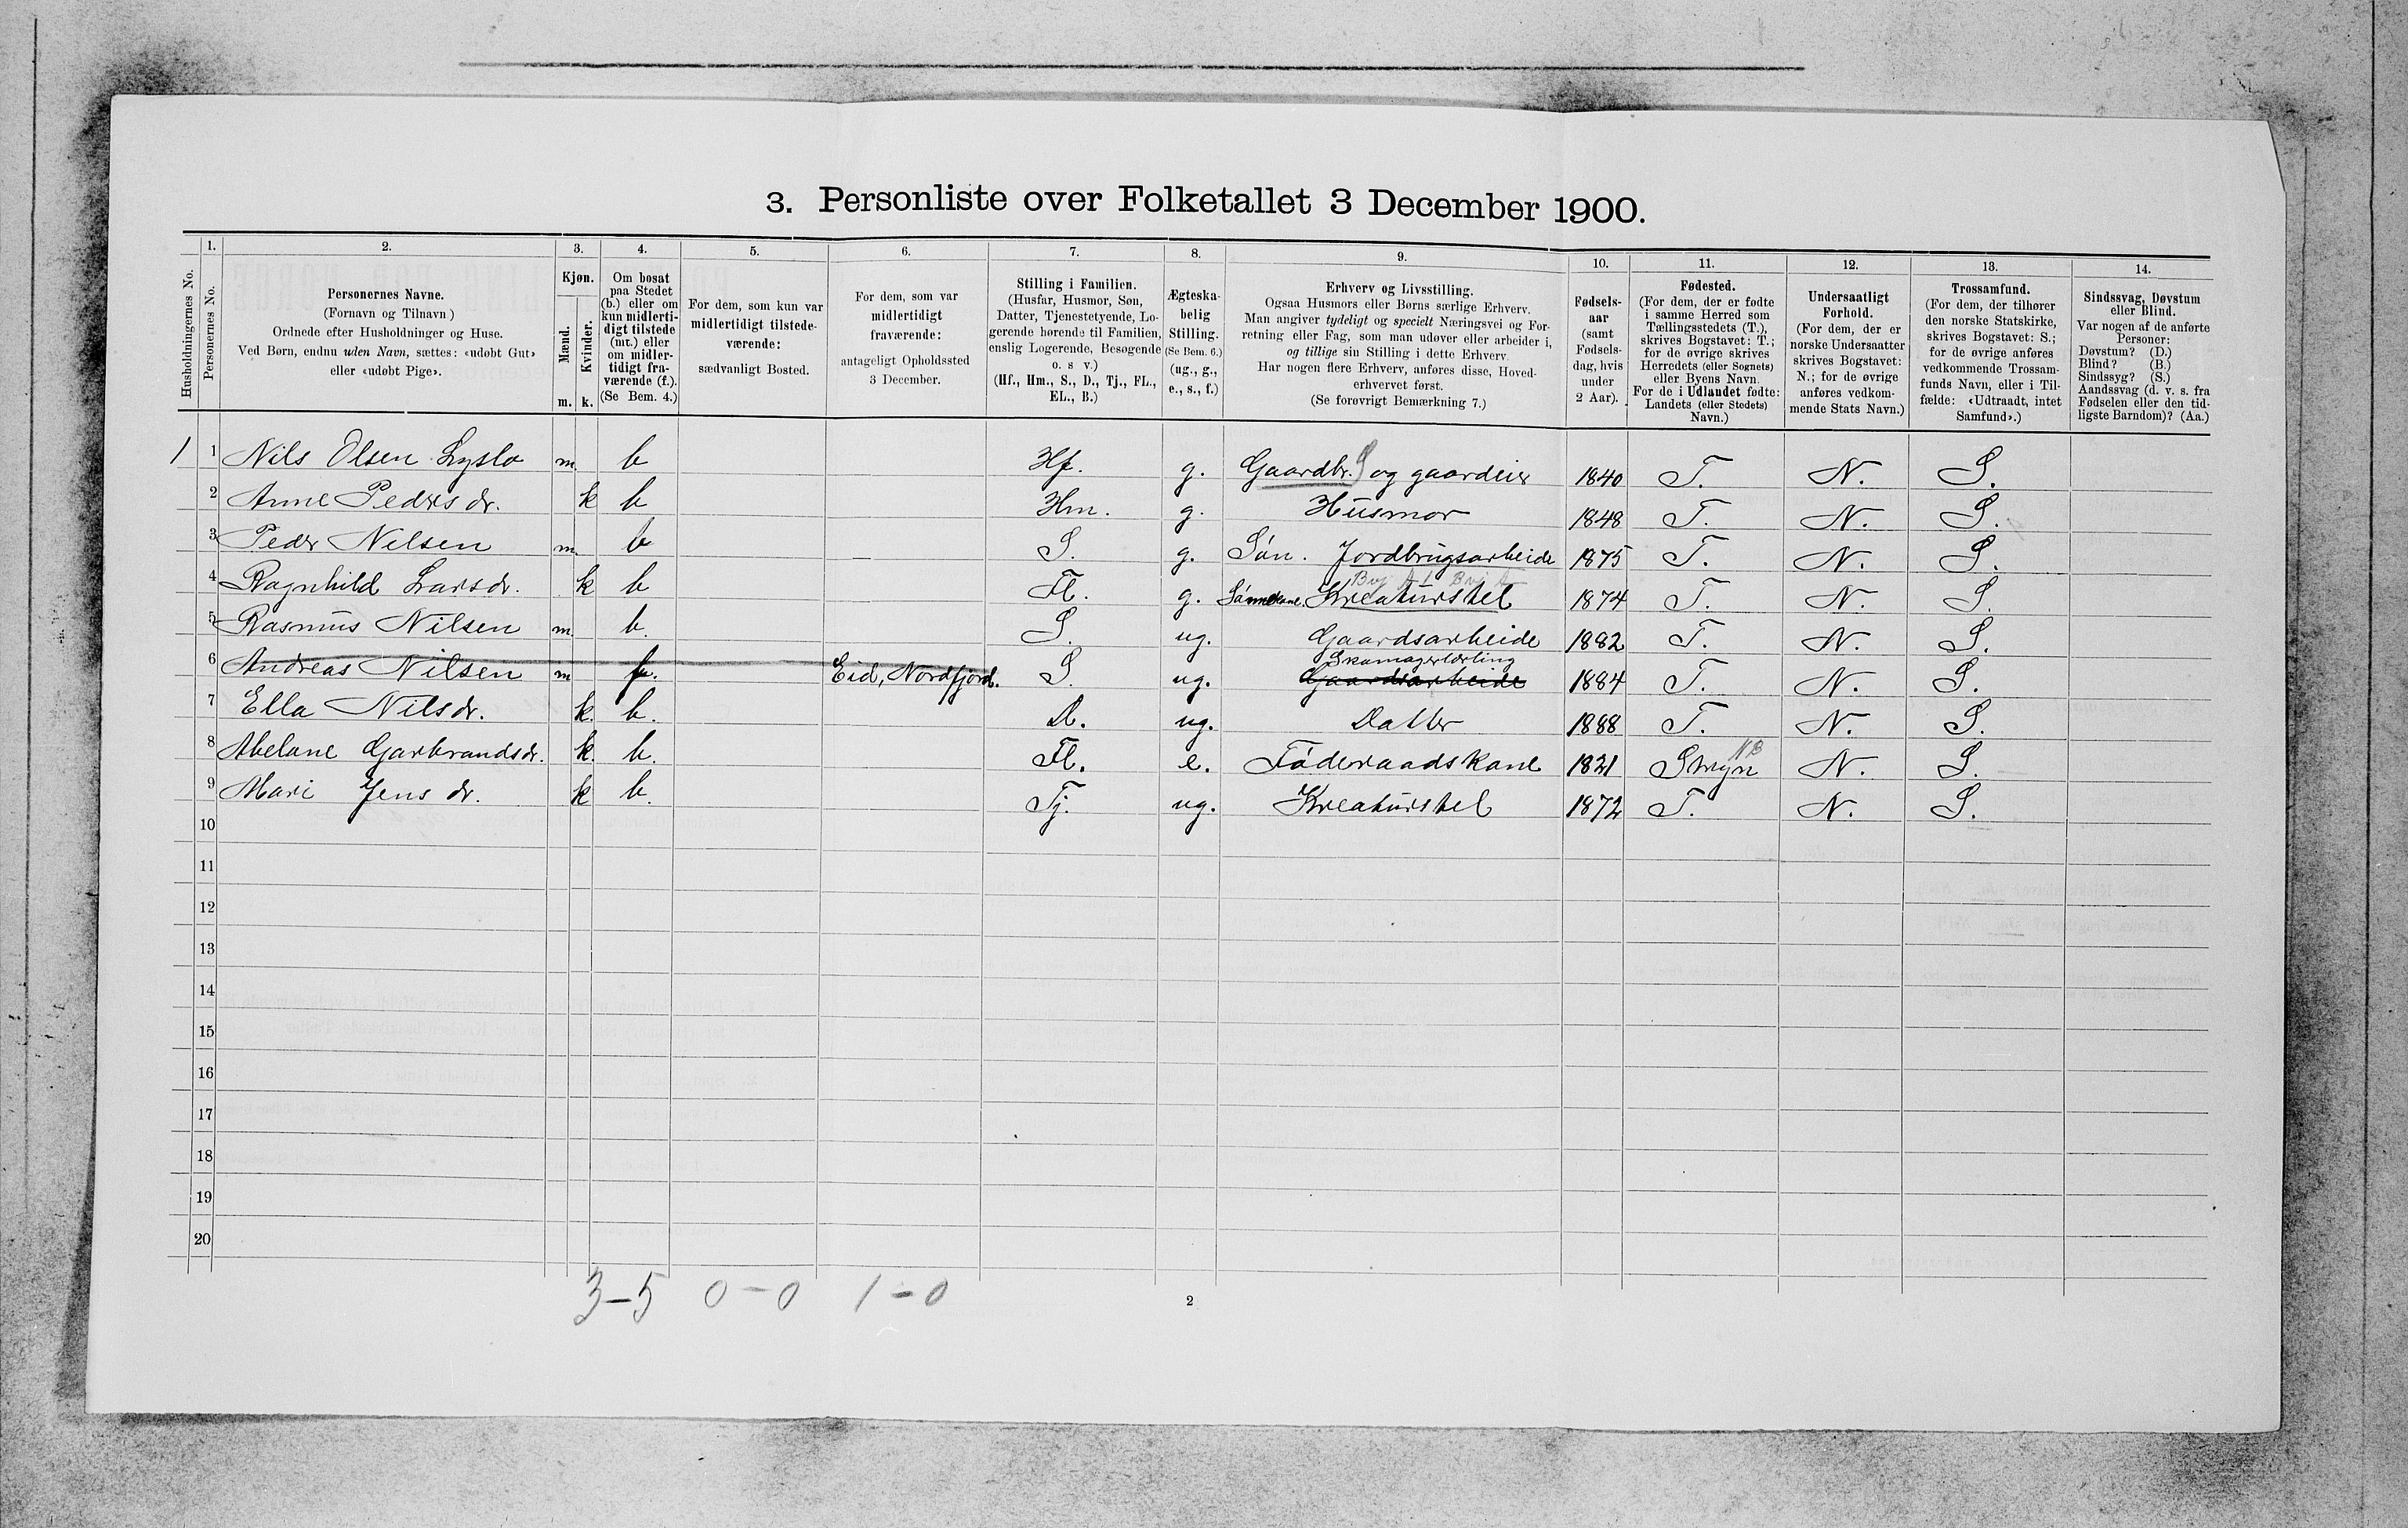 3. Personliste over Folketallet 3 December 1900.
1. 2. 3. 4. 5. 6. 7. 8. 9. 10. 11. 12. 13. 14.
Husholdningernes No.
Personernes No.
Personernes Navne.
(Fornavn og Tilnavn)
Ordnede efter Husholdninger og Huse.
Ved Børn, endnu uden Navn, sættes: «udøbt Gut»
eller «udøbt Pige».
Kjøn.
Mænd.
Kvinder.
m. k.
Om bosat
paa Stedet
(b.) eller om
kun midlerti-
digt tilstede
(mt.) eller
om midler-
tidigt fra-
værende (f.).
(Se Bem. 4.)
For dem, som kun var
midlertidigt tilstede-
værende:
sædvanligt Bosted.
For dem, som var
midlertidigt
fraværende:
antageligt Opholdssted
3 December.
Stilling i Familien.
(Husfar, Husmor, Søn,
Datter, Tjenestetyende, Lo-
gerende hørende til Familien,
enslig Logerende, Besøgende
o. s. v.)
(Hf., Hm., S., D., Tj., FL.,
EL., B.)
Ægteska-
belig
Stilling.
(Se Bem. 6.)
(ug., g.,
e., s., f.)
Erhverv og Livsstilling.
Ogsaa Husmors eller Børns særlige Erhverv.
Man angiver tydeligt og specielt Næringsvei og For-
retning eller Fag, som man udøver eller arbeider i,
og tillige sin Stilling i dette Erhverv.
Har nogen flere Erhverv, anføres disse, Hoved-
erhvervet først.
(Se forøvrigt Bemærkning 7.)
Fødsels-
aar
(samt
Fødsels-
dag, hvis
under
2 Aar).
Fødested.
(For dem, der er fødte
i samme Herred som
Tællingsstedets (T.),
skrives Bogstavet: T.;
for de øvrige skrives
Herredets (eller Sognets)
eller Byens Navn.
For de i Udlandet fødte:
Landets (eller Stedets)
Navn.)
Undersaatligt
Forhold.
(For dem, der er
norske Undersaatter
skrives Bogstavet:
N.; for de øvrige
anføres vedkom-
mende Stats Navn.)
Trossamfund.
(For dem, der tilhører
den norske Statskirke,
skrives Bogstavet: S.;
for de øvrige anføres
vedkommende Trossam-
funds Navn, eller i Til-
fælde: «Udtraadt, intet
Samfund».)
Sindssvag, Døvstum
eller Blind.
Var nogen af de anførte
Personer:
Døvstum? (D.)
Blind? (B.)
Sindssyg? (S.)
Aandssvag (d. v. s. fra
Fødselen eller den tid-
ligste Barndom)? (Aa.)
1 1 Nils Olsen Lyslo m. b Hf. g. Gaardbr. S og gaardeier 1840 T. N. S.
2 Anne Pedersdr. k b Hm. g. Husmor 1848 T. N. S.
3 Peder Nilsen m. b S. g. Søn. Jordbrugsarbeide 1875 T. N. S.
4 Ragnhild Larsdr. k b Fl. g. Sønnekone. Kreaturstel 1874 T. N. S.
5 Rasmus Nilsen m. b. S. ug. Gaardsarbeide 1882 T. N. S.
Skomagerlærling
6 Andreas Nilsen m f. Eid, Nordfjord. S. ug. Gaardsarbeide 1884 T. N. S.
7 Ella Nilsdr. k. b. D. ug. Datter 1888 T. N. S.
8 Abelone Garbrandsdr. k. b. Fl. e. Føderaadskone 1821 Stryn NB N. S.
9 Mari Jensdr. k b. Tj. ug. Kreaturstel 1872 T. N. S.
10
11
12
13
14
15
16
17
18
19
20
3-5 0-0 1-0
2